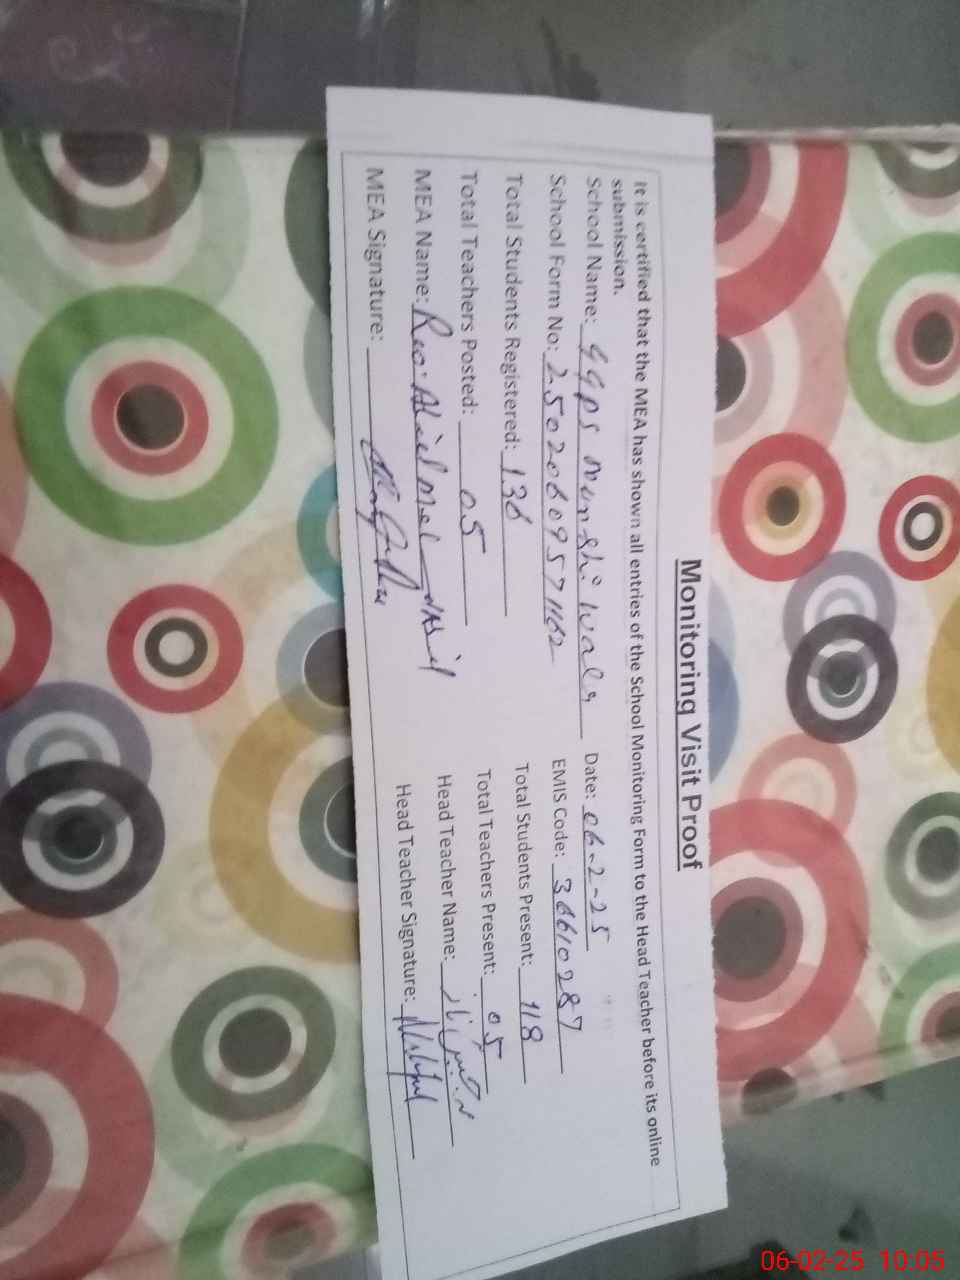 Monitoring Visit Proof
It is certified that the MEA has shown all entries of the School Monitoring Form to the Head Teacher before its online
submission.
School Name: GGPS Munshi Wala Date: 06-2-25
School Form No: 25020609571162 EMIS Code: 36610287
Total Students Registered: 136 Total Students Present: 118
Total Teachers Posted: 05 Total Teachers Present: 05
MEA Name: Head Teacher Name:
MEA Signature: Head Teacher Signature:
06-02-25 10:05